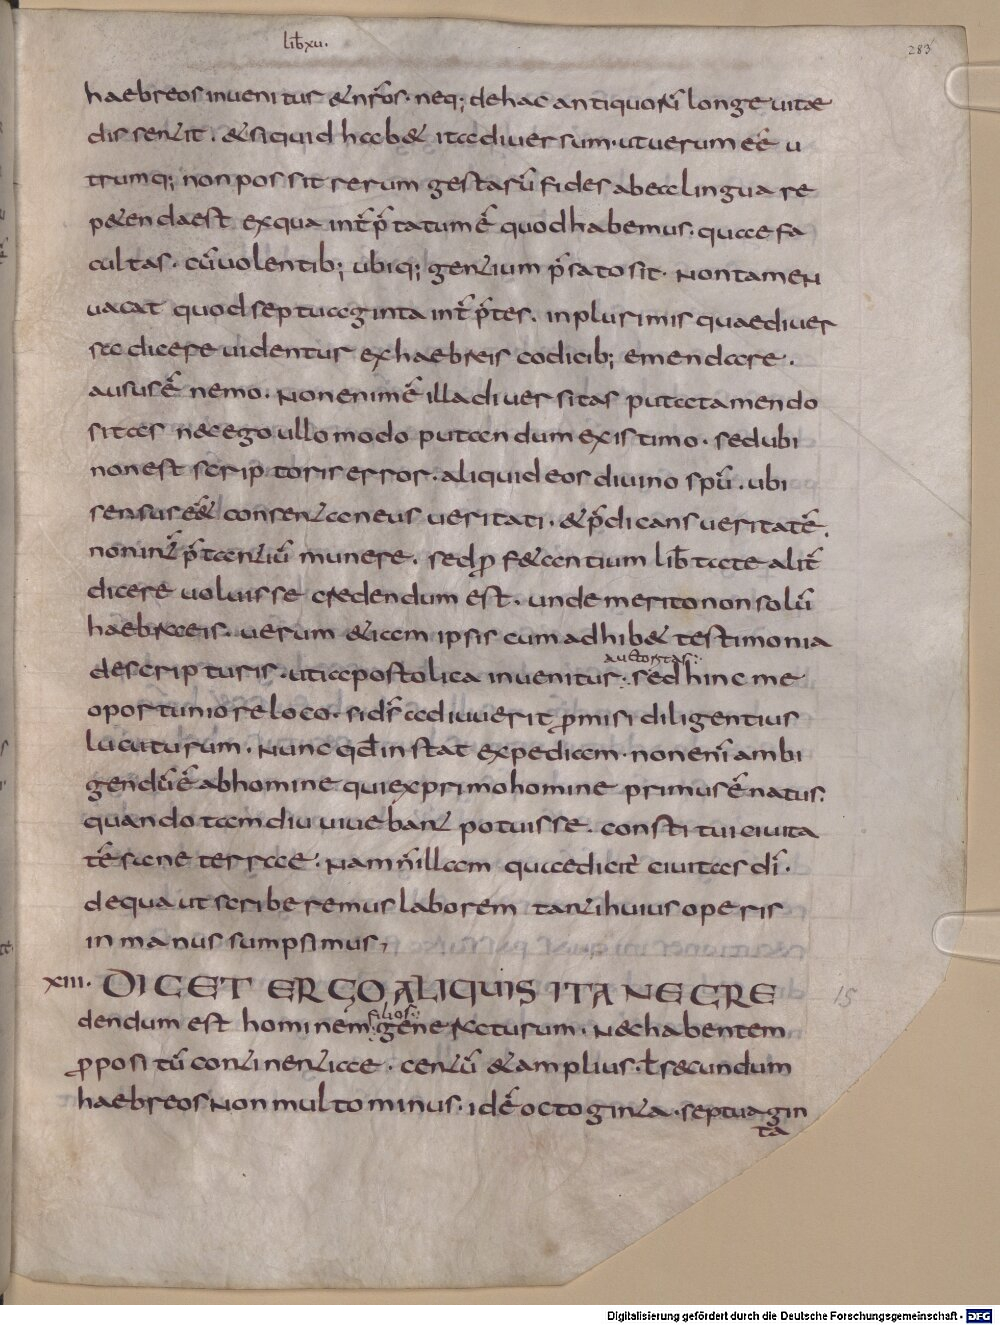 lib̄ xu.
283
haebreos inuenitur & nr̄os. neq; dehac antiquorū longe uitae
dissentit. & siquid hab& ita diuersum. utuerum eē u
trumq; non possit rerum gestarū fides abea lingua re
p&enda est exqua int̄p̄tatum ē quod habemus. quae fa
cultas. cū uolentib; ubiq; gentium p̄sato sit. Non tamen
uacat quod septuaginta int̄p̄tes. inplurimis quae diuer
sa dicere uidentur ex haebreis codicib; emendare.
ausus ē nemo. Non enim ē illa diuersitas putata mendo
sitas nec ego ullo modo putandum existimo. sed ubi
non est scriptoris error. aliquid eos diuino spū. ubi
sensus e& consentaneus ueritati. & p̄dicans ueritatē.
non int̄p̄tantiū munere. sed p fa&antium lib̄tate alit̄
dicere uoluisse credendum est. unde merito non solū
haebraeis. uerum &iam ipsis cum adhib& testimonia
auctoritas
descripturis. uti apostolica inuenitur. sed hinc me
oportuniore loco. si dr̄ adiuuerit promisi diligentius
lucuturum. Nunc qd̄ instat expediam. non enī ambi
gendū ē ab homine qui exprimo homine primus ē natus.
quando tam diu uiuebant potuisse. constitui ciuita
tē sane terrae. Nam n̄ illam quae dicit ciuitas dī.
de qua ut scriberemus laborem tanti huius operis
in manus sumpsimus,
xiii. DICET ERGO ALIQUIS ITA NE CRE
15
filios
dendum est hominem generaturum. Nec habentem
propositū continentiae. centū & amplius. l̄ secundum
haebreos Non multo minus. id ē octoginta. septuagin
ta
Digitalisierung gefördert durch die Deutsche Forschungsgemeinschaft - DFG